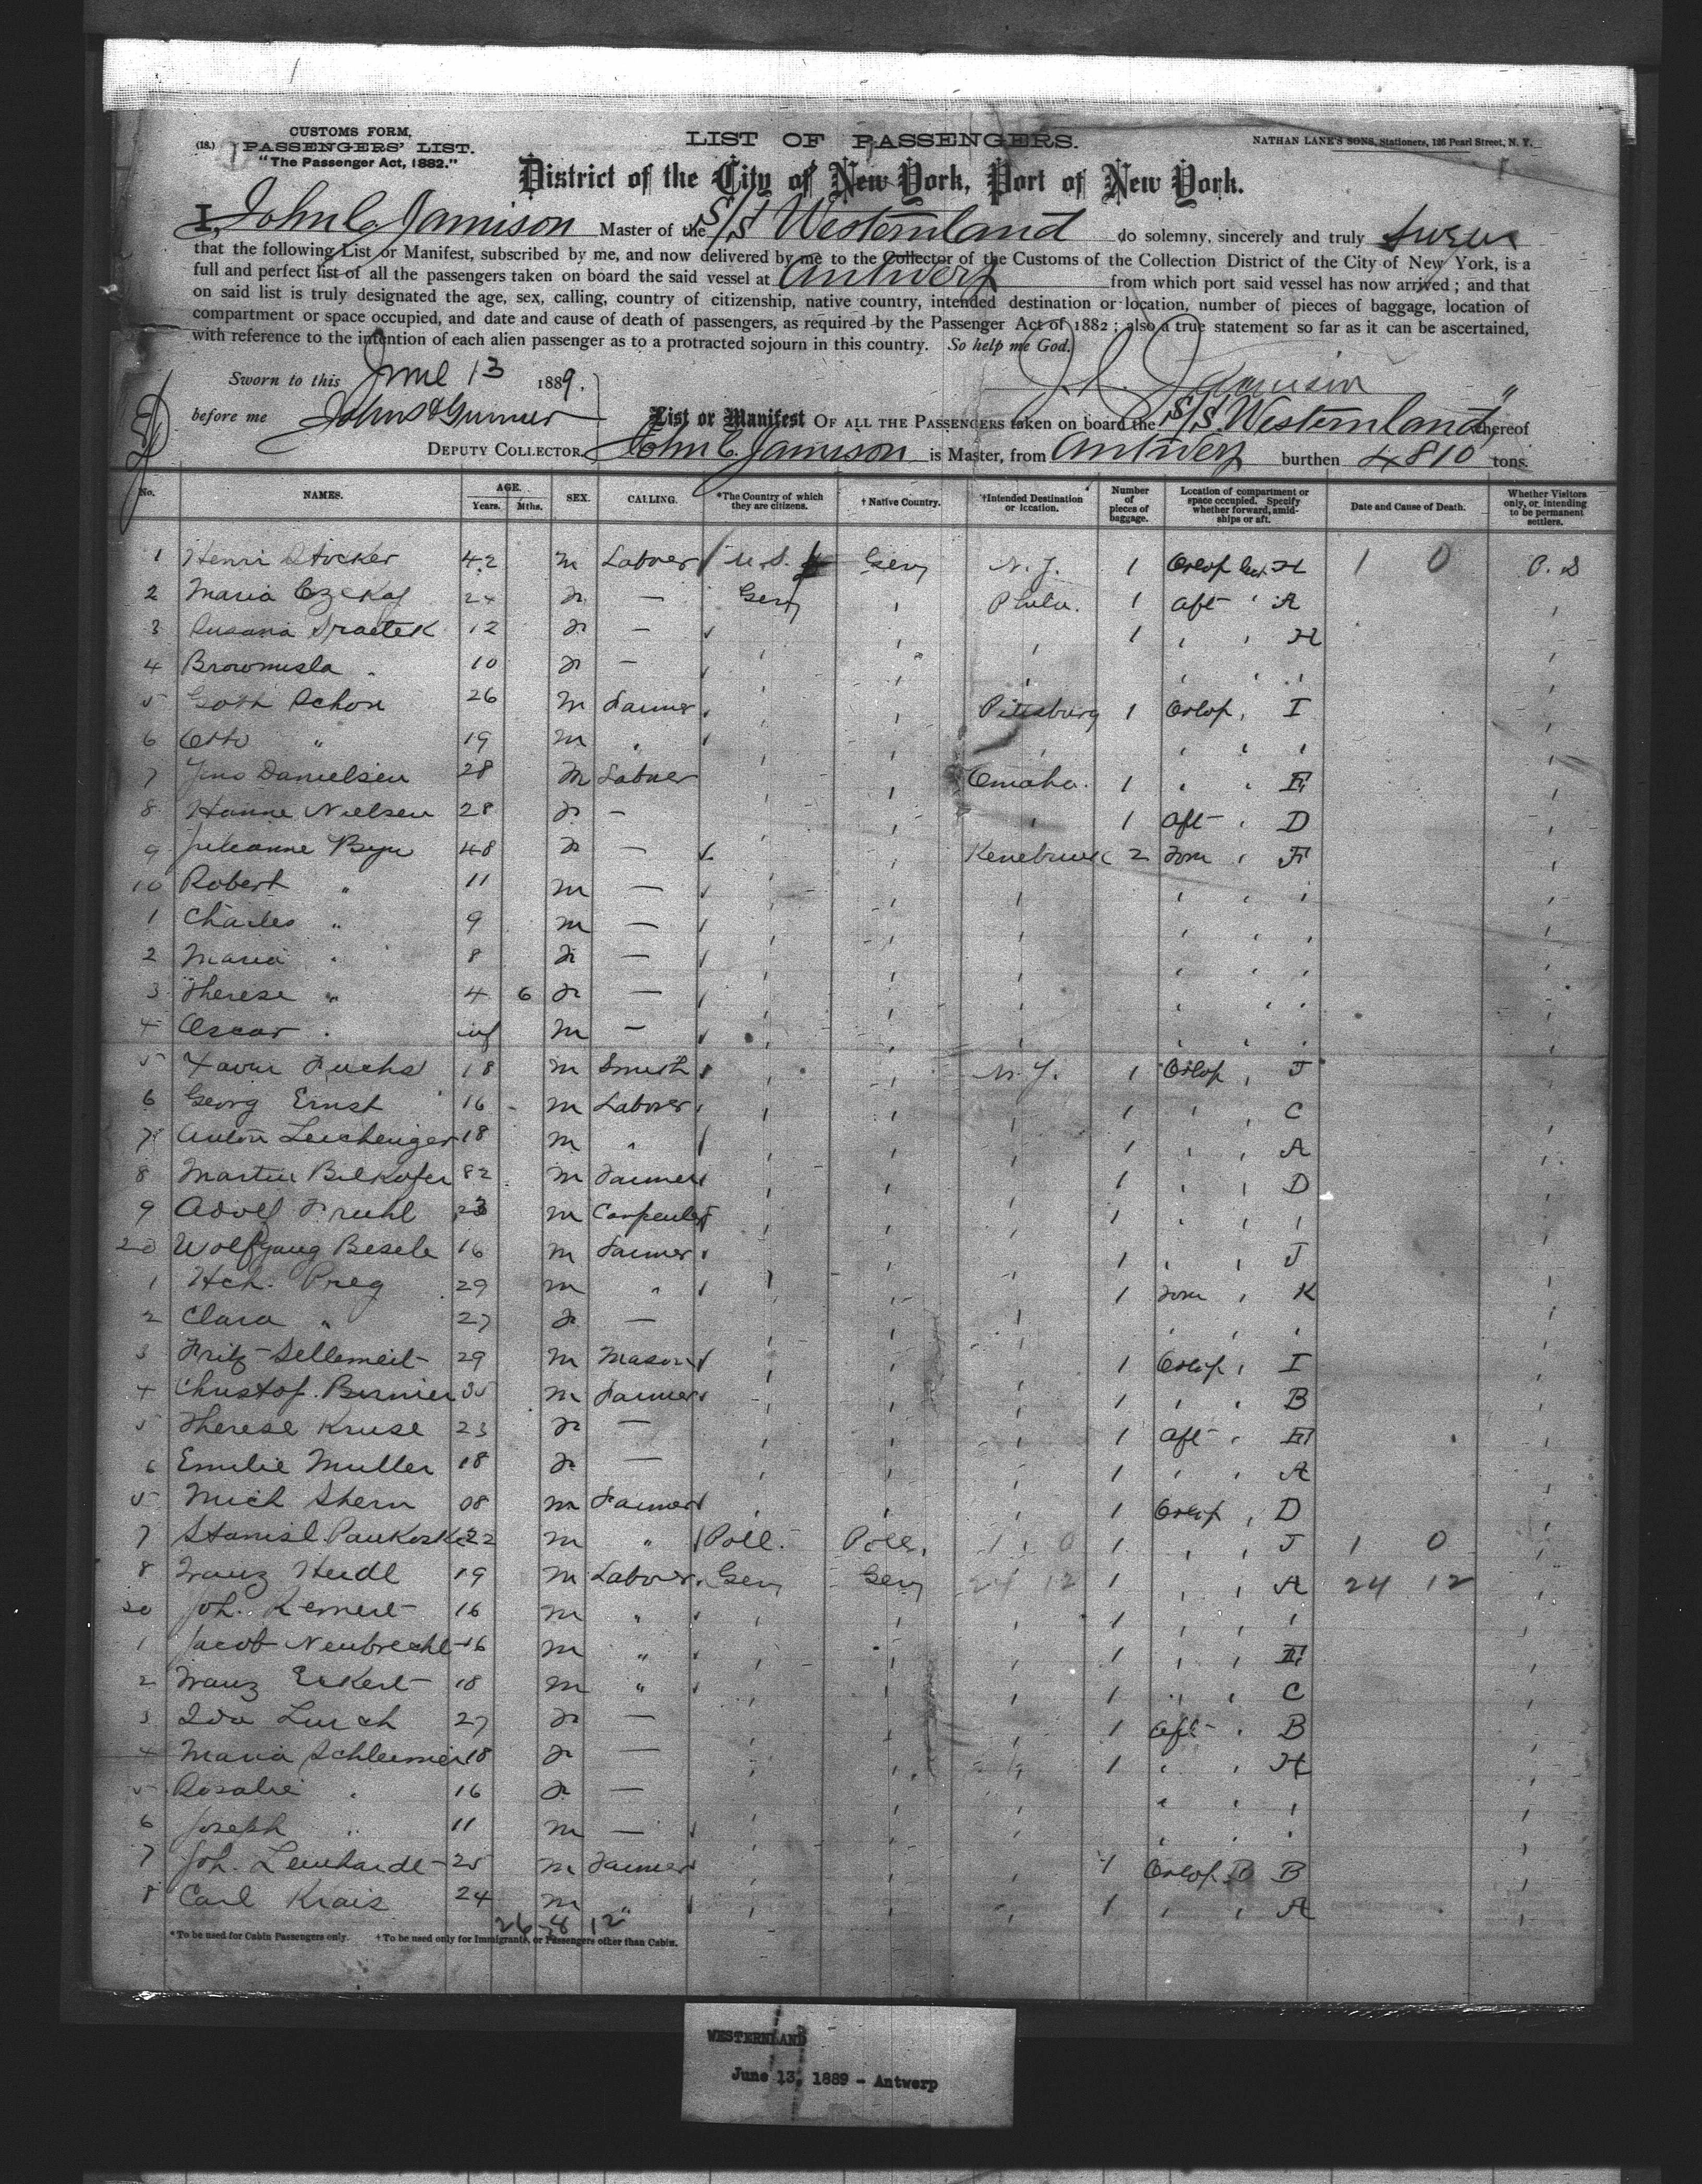 CUSTOMS FORM,
(18.) PASSENGERS' LIST.
"The Passenger Act, 1882."
LIST OF PASSENGERS.
NATHAN LANE'S SONS, Stationers, 126 Pearl Street, N. Y.
District of the City of New York, Port of New York.
I, John C. Jamison Master of the S/S Westernland do solemny, sincerely and truly swear
that the following List or Manifest, subscribed by me, and now delivered by me to the Collector of the Customs of the Collection District of the City of New York, is a
full and perfect list of all the passengers taken on board the said vessel at Antwerp from which port said vessel has now arrived ; and that
on said list is truly designated the age, sex, calling, country of citizenship, native country, intended destination or location, number of pieces of baggage, location of
compartment or space occupied, and date and cause of death of passengers, as required by the Passenger Act of 1882 ; also a true statement so far as it can be ascertained,
with reference to the intention of each alien passenger as to a protracted sojourn in this country. So help me God.
Sworn to this June 13 1889. J. C. Jamison
before me
List or Manifest OF ALL THE PASSENGERS taken on board the S/S. Westernland, whereof
DEPUTY COLLECTOR. John C. Jamison is Master, from Antwerp burthen 4810 tons.
No. NAMES. AGE. Years. Mths. SEX. CALLING. *The Country of which they are citizens. † Native Country. †Intended Destination or location. Number of pieces of baggage. Location of compartment or space occupied. Specify whether forward, amid-ships or aft. Date and Cause of Death. Whether Visitors only, or intending to be permanent settlers.
1 Henri Stocker 42 m Laborer U.S. Gery N.Y. 1 Orlop H 1 0 P.S
2 Maria 24 Gery Phila. 1 aft A
3 12 1 H
4 10
5 Schon 26 m Farmer Pittsburg 1 Orlop I
6 Otto " 19 m "
7 Jens Danielsen 28 m Laborer Omaha. 1 E
8 Hanne Nielsen 28 — 1 aft D
9 48 — 2 F
10 Robert " 11 m —
1 Charles " 9 m —
2 Maria " 8 —
3 Therese " 4 6 —
4 Oscar " inf m —
5 Xaver Fuchs 18 m Smith N.Y. 1 Orlop J
6 Georg Ernst 16 m Laborer 1 C
7 Anton 18 m " 1 A
8 Martin Bilkofer 82 m Farmer 1 D
9 Adolf Fruhl 23 m Carpenter 1
20 Wolfgang Besele 16 m Farmer 1 J
1 Hch. Preg 29 m " 1 K
2 Clara " 27 —
3 Fritz Sellemeit 29 m Mason 1 Orlop I
4 Christof 35 m Farmer 1 B
5 Therese Kruse 23 — 1 aft E
6 Emilie Muller 18 — 1 A
5 Mich Shern 08 m Farmer 1 Orlop D
7 Stanisl. 22 m " Poll. Poll. 1 0 1 J 1 0
8 Franz Heidl 19 m Laborer Gery Gery 24 12 1 A 24 12
30 Joh. 16 m " 1
1 Jacob Neubrecht 16 m " 1 E
2 Franz Eckert 18 m " 1 C
3 Ida 27 — 1 aft B
4 Maria 18 — 1 H
5 Rosalie " 16 —
6 Joseph " 11 m —
7 Joh. Leuhardt 25 m Farmer 1 Orlop B
8 Carl Krais 24 m " 1 A
26 8 12
*To be used for Cabin Passengers only. †To be used only for Immigrants, or Passengers other than Cabin.
WESTERNLAND
June 13, 1889 - Antwerp